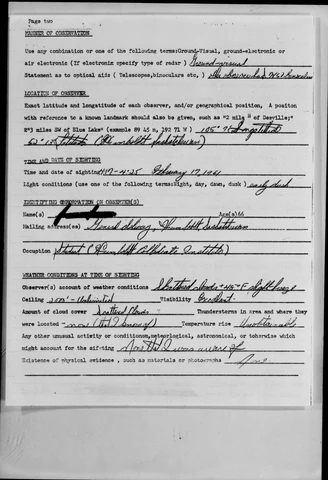 Page two
MANNER OF OBSERVATION
Use any combination or one of the following terms:Ground-Visual, ground-electronic or
air electronic (If electronic specify type of radar ) Ground-visual
Statement as to optical aids ( Telescopes,binoculars etc, )
LOCATION OF OBSERVER
Exact latitude and longitude of each observer, and/or geographical position, A positon
with reference to a known landmark should also be given, such as "2 mile N of Desville;"
N"3 miles SW of Blue Lake" (example 89 45 n, 192 71 W ) 105° longitude
52° latitude (Humboldt, Saskatchewan)
TIME AND DATE OF SIGHTING
Time and date of sighting February 17, 1961
Light conditions (use one of the following terms:Night, day, dawn, dusk ) early dusk
IDENTIFYING INFORMATION OR OBSERVER(S)
Name(s) Age(s)66
Mailing address(es) Humboldt, Saskatchewan
Occupation Student (Humboldt Collegiate Institute)
WEATHER CONDITIONS AT TIME OF SIGHTING
Observer(s) account of weather conditions Scattered clouds +45° F slight breeze
Ceiling Unlimited Visibility Excellent
Amount of cloud cover Scattered Clouds Thunderstorms in area and where they
were located none (that I know of) Temperature rise Unobtainable
Any other unusual activity or condition, meteorological, astronomical, or toherwise which
might account for the sifting None that I was aware of
Existence of physical evidence , such as materials or photographs None